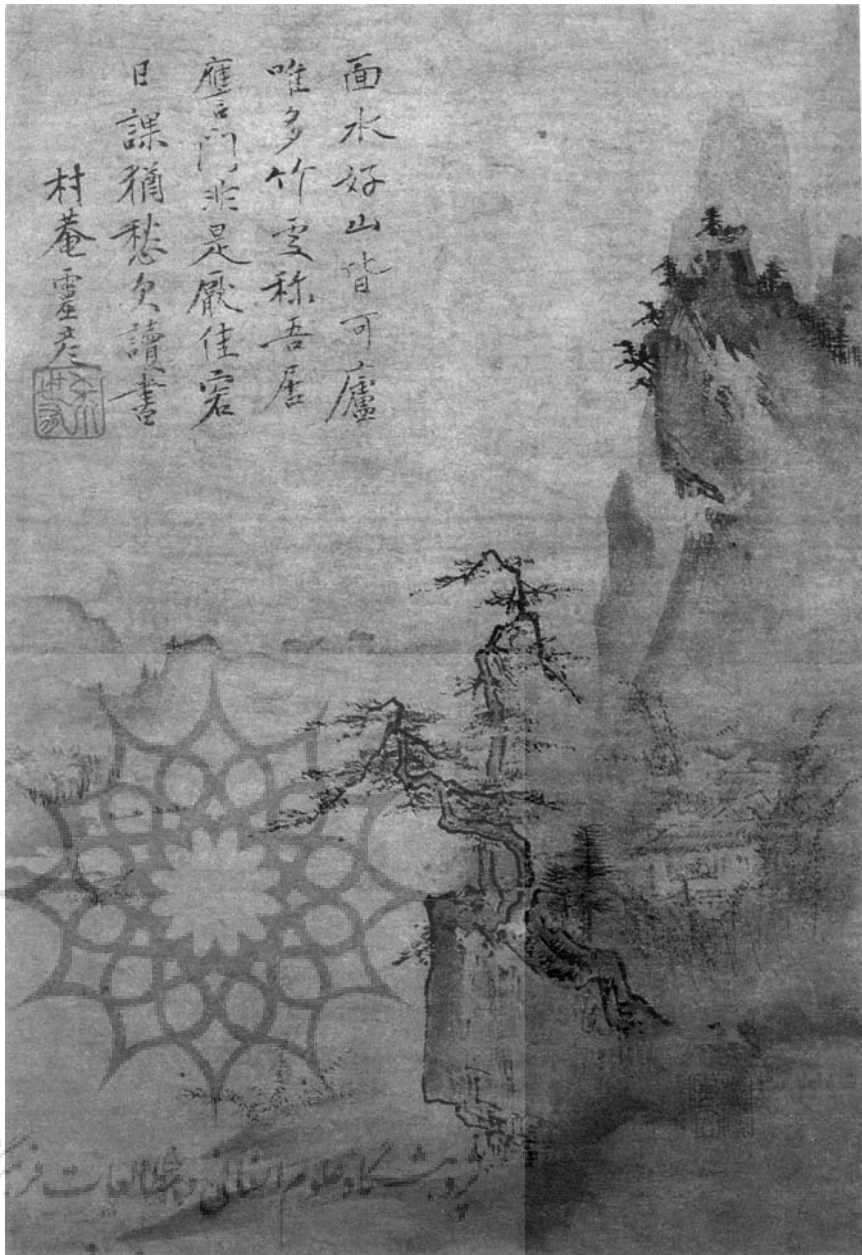 面水好山皆可廬
唯多竹處称吾居
應門非是厭佳客
日課猶愁欠讀書
村菴霊彦
پژوهشگاه علوم انسانی و مطالعات